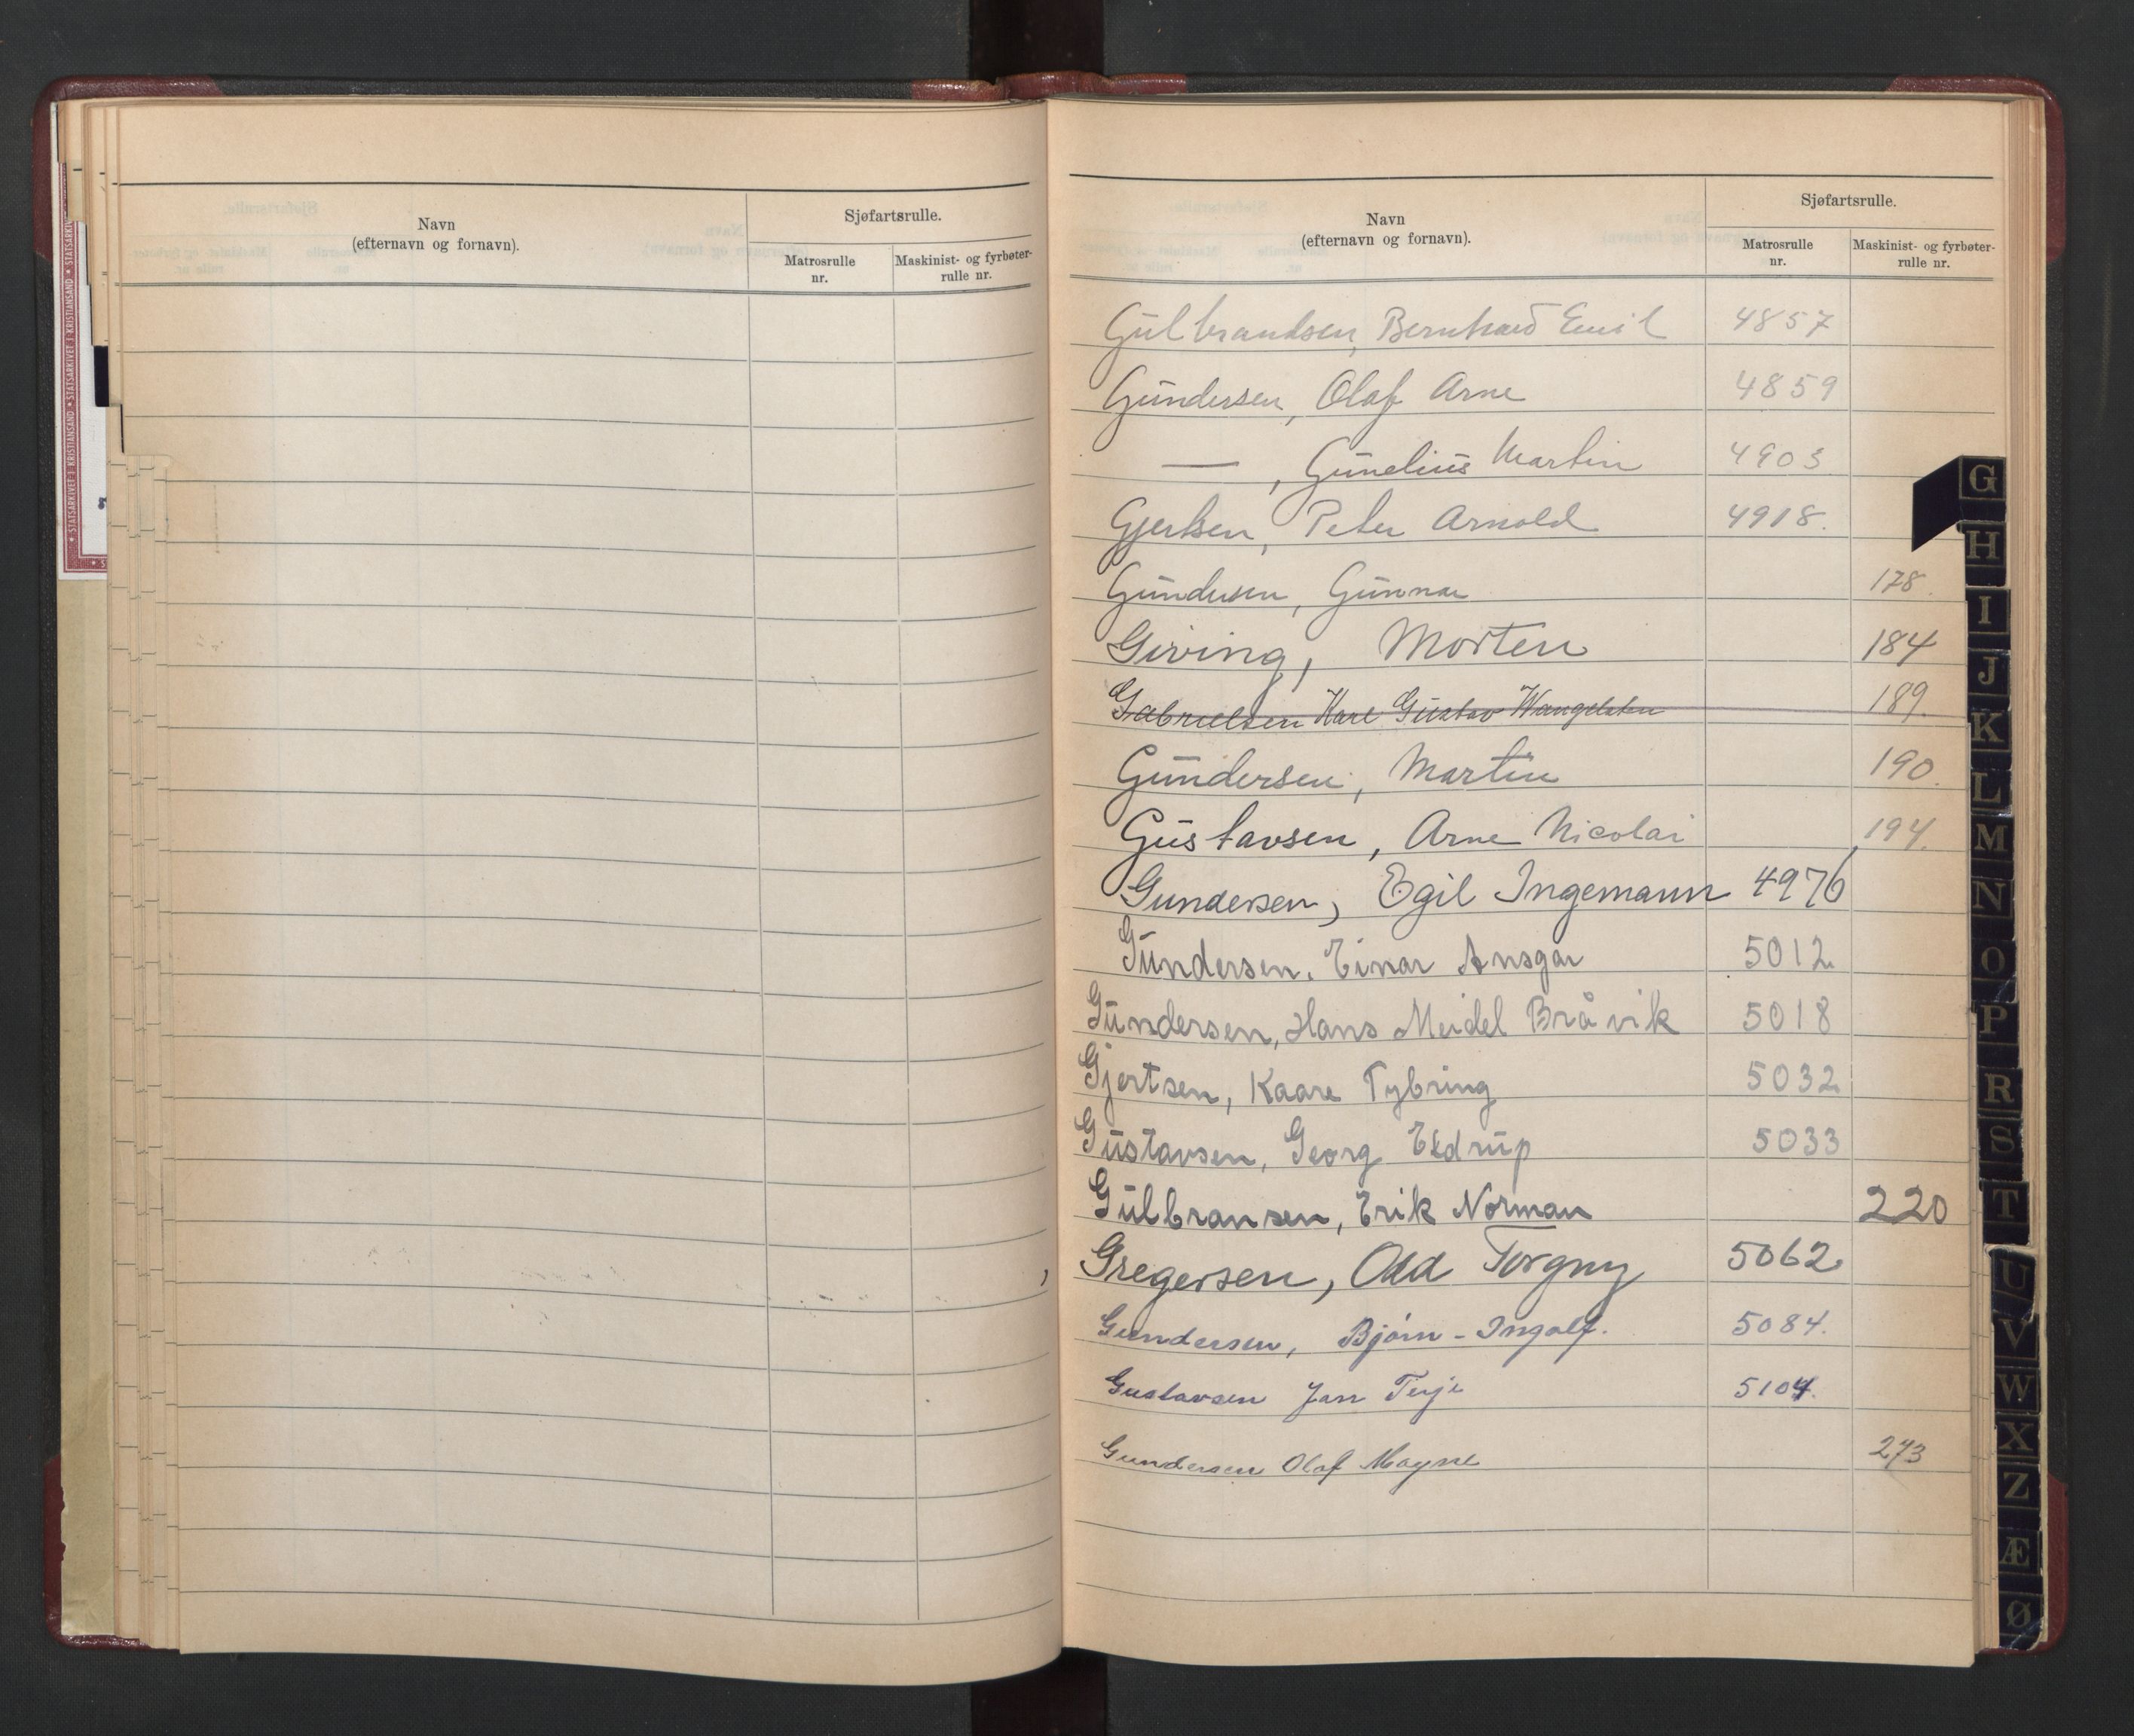 Navn
(efternavn og fornavn).
Sjøfartsrulle.
Matrosrulle
nr.
Maskinist- og fyrbøter-
rulle nr.
Navn
(efternavn og fornavn).
Sjøfartsrulle.
Matrosrulle
nr.
Maskinist- og fyrbøter-
rulle nr.
Gulbrandsen, Bernhard Emil 4857
Gundersen, Olaf Arne 4859
— , Gunelius Martin 4903
Gjertsen, Peter Arnold 4918.
Gundersen, Gunnar 178.
Giving, Morten 184
Gabrielsen Karl Gustav 189.
Gundersen, Martin 190.
Gustavsen, Arne Nicolai 194.
Gundersen, Egil Ingemann 4976
Gundersen, Einar Ansgar 5012
Gundersen, Hans Meidel Bråvik 5018
Gjertsen, Kaare Tybring 5032
Gustavsen, Georg 5033
Gulbransen, Erik Norman 220
Gregersen, Odd Torgny 5062
Gundersen, Bjørn - Ingolf. 5084.
Gustavsen Jan Terje 5104.
Gundersen Olaf Magne 273
G
H
I
J
K
L
M
N
O
P
R
S
T
U
V
W
X
Z
Æ
Ø
STATSARKIVET I KRISTIANSAND